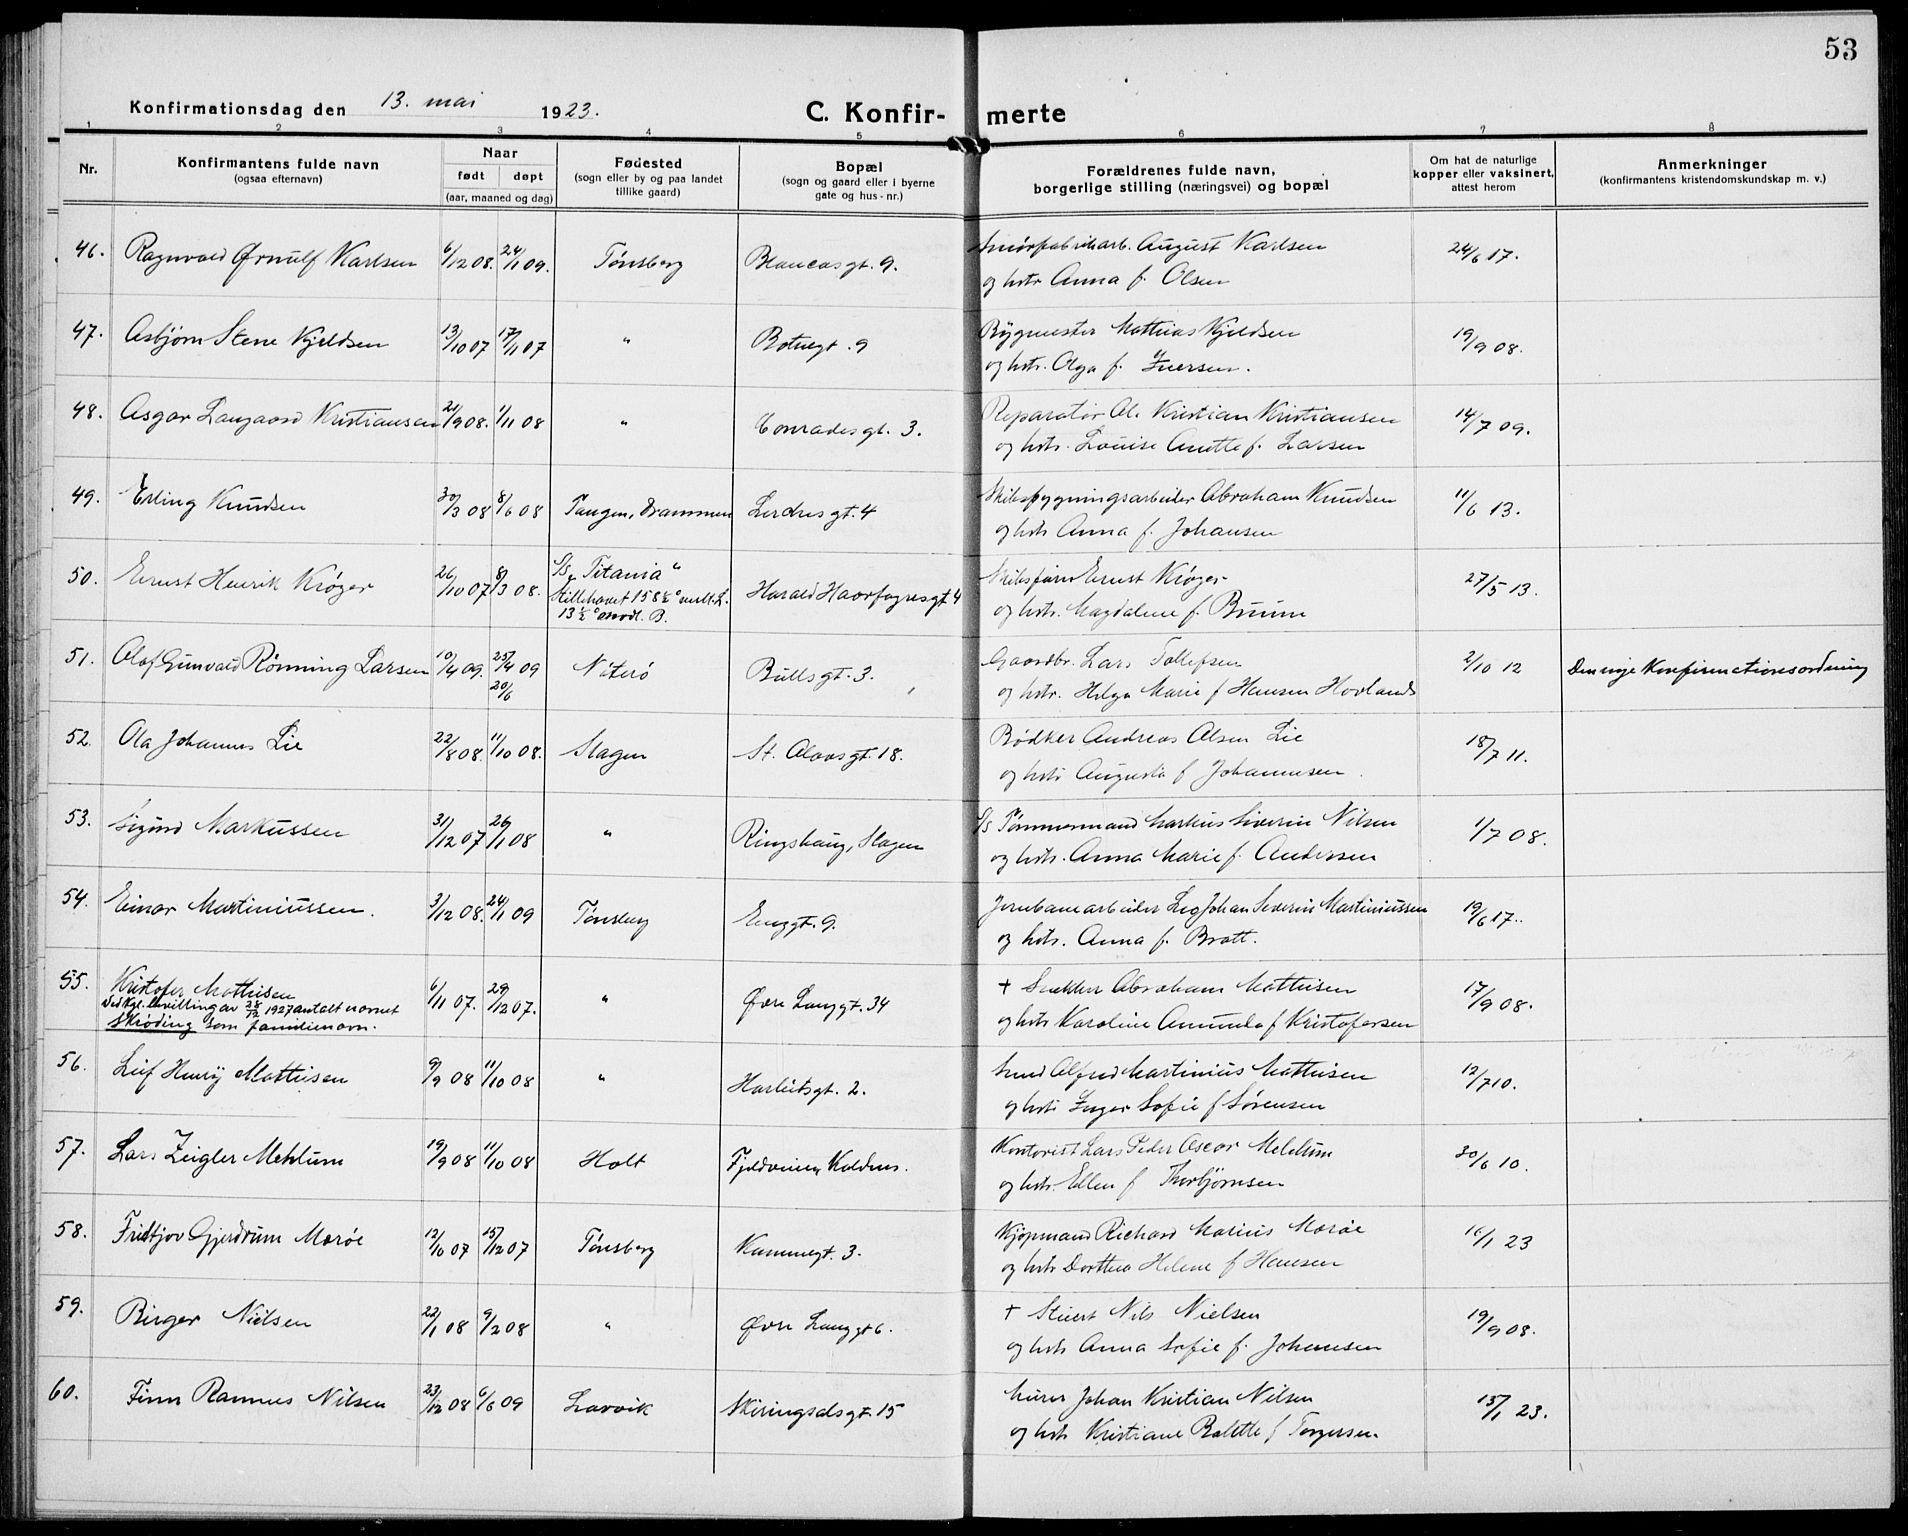 53
Konfirmationsdag den 13. mai 1923.
C. Konfir- merte
1 2 3 4 5 6 7 8
Nr.
Konfirmantens fulde navn
(ogsaa efternavn)
Naar
født døpt
(aar, maaned og dag)
Fødested
(sogn eller by og paa landet
tillike gaard)
Bopæl
(sogn og gaard eller i byerne
gate og hus-nr.)
Forældrenes fulde navn,
borgerlige stilling (næringsvei) og bopæl
Om hat de naturlige
kopper eller vaksinert,
attest herom
Anmerkninger
(konfirmantens kristendomskundskap m. v.)
46. Ragnvald Ørnulf Karlsen 6/12 08. 24/1 09. Tønsberg Blancasgt. 9. Smørfabrikarb. August Karlsen 24/6 17.
og hstr Anna f. Olsen
47. Asbjørn Stene Kjeldsen 13/10 07 17/11 07 " Botnegt. 9 Bygmester Mathias Kjeldsen 19/9 08.
og hstr. Olga f. Iversen.
48. Asgar Langaard Kristiansen 21/9 08. 1/11 08 " Conradesgt. 3. Reparatør Ole Kristian Kristiansen 14/7 09.
og hstr. Louise Anette f. Larsen
49. Erling Knudsen 30/3 08 8/6 08 Tangen, Drammen Lerchesgt. 4 Skibsbygningsarbeider Abraham Knudsen 11/6 13.
og hstr Anna f. Johansen
50. Ernst Henrik Krøger 26/10 07 8/3 08. S/S "Titania" Harald Haarfagresgt 4 Skibsfører Ernst Krøger 27/5 13.
Stillehavet 158½° vestl. L.
13½° nordl. B.
og hstr. Magdalene f. Bruun
51. Olaf Gunvald Rønning Larsen 10/4 09. 25/4 09 Nøterø Bullsgt. 3. Gaardbr. Lars Tollefsen 2/10 12 Den nye Konfirmationsordning
20/6
og hstr. Helga Marie f Hansen Hovland
52. Ola Johannes Lie 22/8 08. 11/10 08. Slagen St. Olavsgt. 18. Bødker Andreas Olsen Lie 18/7 11.
og hstr Augusta f Johannesen
53. Sigurd Markussen 31/12 07 26/1 08 " Ringshaug, Slagen S/S Tømmermand Markus Severin Nilsen 1/7 08.
og hstr. Anna Marie f. Andersen
54. Einar Martiniussen. 3/12 08. 24/1 09 Tønsberg Enggt. 9. Jernbanearbeider Leg Johan Severin Martiniussen 19/6 17.
og hstr. Anna f. Bratt.
55. Kristofer Mathisen 6/11 07. 29/12 07. " Øvre Langgt. 34 + Snekker Abraham Mathisen 17/9 08.
Ved kgl. bevilling av 28/12 1927 antatt navnet
Skrøding som familienavn.
og hstr Karoline Amunda f Kristofersen
56. Leif Henry Mathisen 9/9 08 11/10 08 " Harleitsgt. 2. Smed Alfred Martinius Mathisen 12/7 10.
og hstr Inger Sofie f Sørensen
57. Lars Zeigler Mehlum 19/9 08 11/10 08 Holt Fjeldveien, Kaldnes. Kontorist Lars Peder Oscar Mehlum 30/6 10.
og hstr. Ellen f Thorbjørnsen
58. Fridtjov Gjerdrum Morøe 12/10 07 15/12 07 Tønsberg Kammegt. 3. Kjøpmand Richard Marius Morøe 16/1 23
og hstr Dorthea Helene f Hansen
59. Birger Nielsen 22/1 08 9/2 08 " Øvre Langgt 6. + Stuert Nils Nielsen 19/9 08.
og hstr Anna Sofie f. Johansen
60. Finn Ramnes Nilsen 23/12 08 6/6 09 Larvik Skiringsalsgt. 15 Murer Johan Kristian Nilsen 15/1 23.
og hstr Kristiane Bolette f Torgersen.